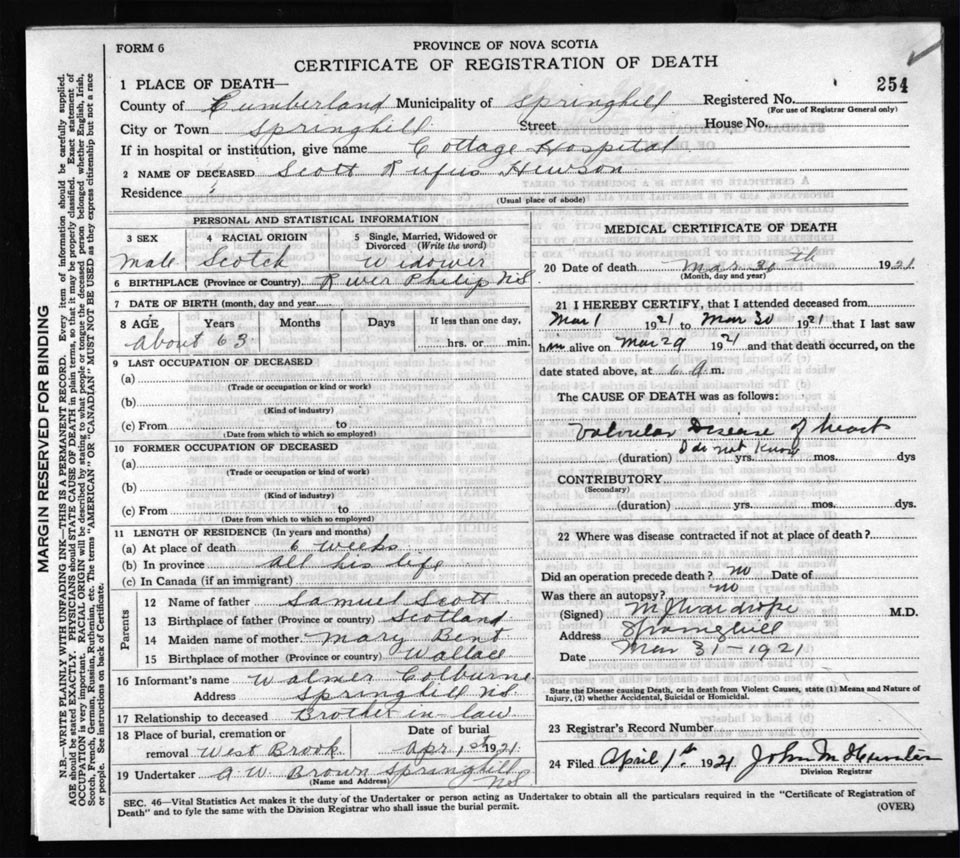 FORM 6
PROVINCE OF NOVA SCOTIA
CERTIFICATE OF REGISTRATION OF DEATH
254
1 PLACE OF DEATH—
County of Cumberland Municipality of Springhill Registered No.
(For use of Registrar General only)
City or Town Springhill Street House No.
If in hospital or institution, give name Cottage Hospital
2 NAME OF DECEASED Scott Rufus Hewson
Residence
(Usual place of abode)
PERSONAL AND STATISTICAL INFORMATION
3 SEX 4 RACIAL ORIGIN 5 Single, Married, Widowed or Divorced (Write the word)
Male Scotch Widower
6 BIRTHPLACE (Province or Country) River Philip NS
7 DATE OF BIRTH (month, day and year)
8 AGE Years Months Days If less than one day,
About 63 hrs. or min.
9 LAST OCCUPATION OF DECEASED
(a)
(Trade or occupation or kind or work)
(b)
(Kind of industry)
(c) From to
(Date from which to which so employed)
10 FORMER OCCUPATION OF DECEASED
(a)
(Trade or occupation or kind of work)
(b)
(Kind of industry)
(c) From to
(Date from which to which so employed)
11 LENGTH OF RESIDENCE (In years and months)
(a) At place of death 6 weeks
(b) In province all his life
(c) In Canada (if an immigrant)
Parents
12 Name of father Samuel Scott
13 Birthplace of father (Province or country) Scotland
14 Maiden name of mother Mary Bent
15 Birthplace of mother (Province or country) Wallace
16 Informant's name Walmer Colburne
Address Springhill NS
17 Relationship to deceased Brother in law
18 Place of burial, cremation or removal West Brook Date of burial Apr 1st 1921
19 Undertaker A W Brown Springhill NS
(Name and Address)
MEDICAL CERTIFICATE OF DEATH
20 Date of death Mar 30th 1921
(Month, day and year)
21 I HEREBY CERTIFY, that I attended deceased from
Mar 1 1921 to Mar 30 1921 that I last saw
him alive on Mar 29 1921 and that death occurred, on the
date stated above, at 6 a.m.
The CAUSE OF DEATH was as follows:
Valvular Disease of heart
Do not know
(duration) yrs. mos. dys
CONTRIBUTORY
(Secondary)
(duration) yrs. mos. dys.
22 Where was disease contracted if not at place of death?
Did an operation precede death? no Date of
Was there an autopsy? no
(Signed) M J Wardrope M.D.
Address Springhill
Date Mar 31 - 1921
State the Disease causing Death, or in death from Violent Causes, state (1) Means and Nature of
Injury, (2) whether Accidental, Suicidal or Homicidal.
23 Registrar's Record Number
24 Filed April 1st 1921
Division Registrar
SEC. 46—Vital Statistics Act makes it the duty of the Undertaker or person acting as Undertaker to obtain all the particulars required in the "Certificate of Registration of
Death" and to fyle the same with the Division Registrar who shall issue the burial permit.
(OVER)
MARGIN RESERVED FOR BINDING
N.B.—WRITE PLAINLY WITH UNFADING INK—THIS IS A PERMANENT RECORD. Every item of information should be carefully supplied.
AGE should be stated EXACTLY. PHYSICIANS should STATE CAUSE OF DEATH in plain terms, so that it may be properly classified. Exact statement of
OCCUPATION is very important. RACIAL ORIGIN will be described by stating to what people or tongue the deceased person belonged whether English, Irish,
Scotch, French, German, Russian, Ruthenian, etc. The terms "AMERICAN" OR "CANADIAN" MUST NOT BE USED as they express citizenship but not a race
or people. See instructions on back of Certificate.